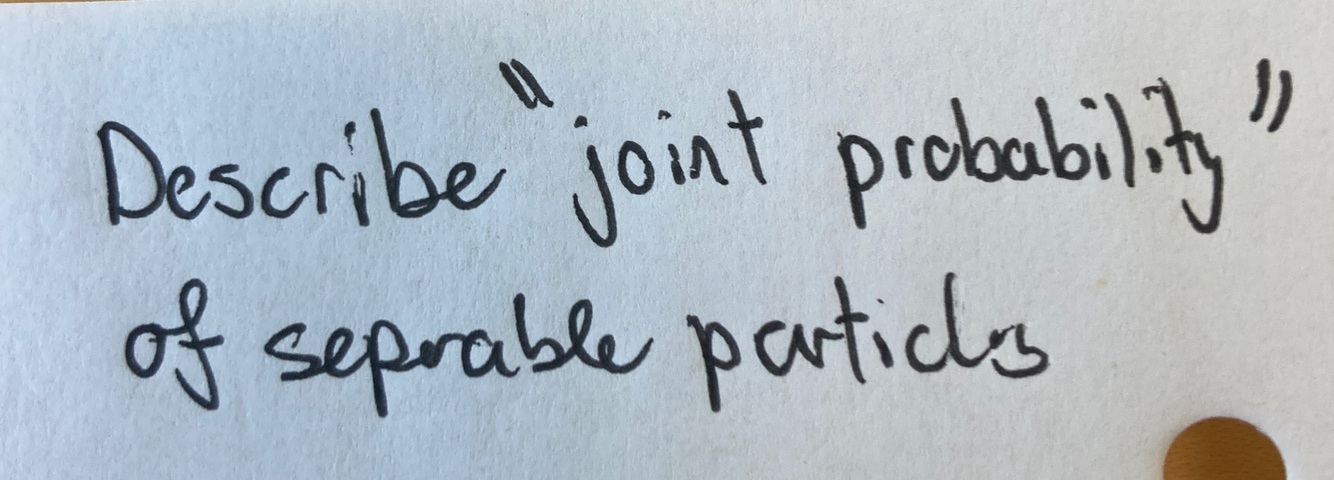 Describe "joint probability"
of seprable particls